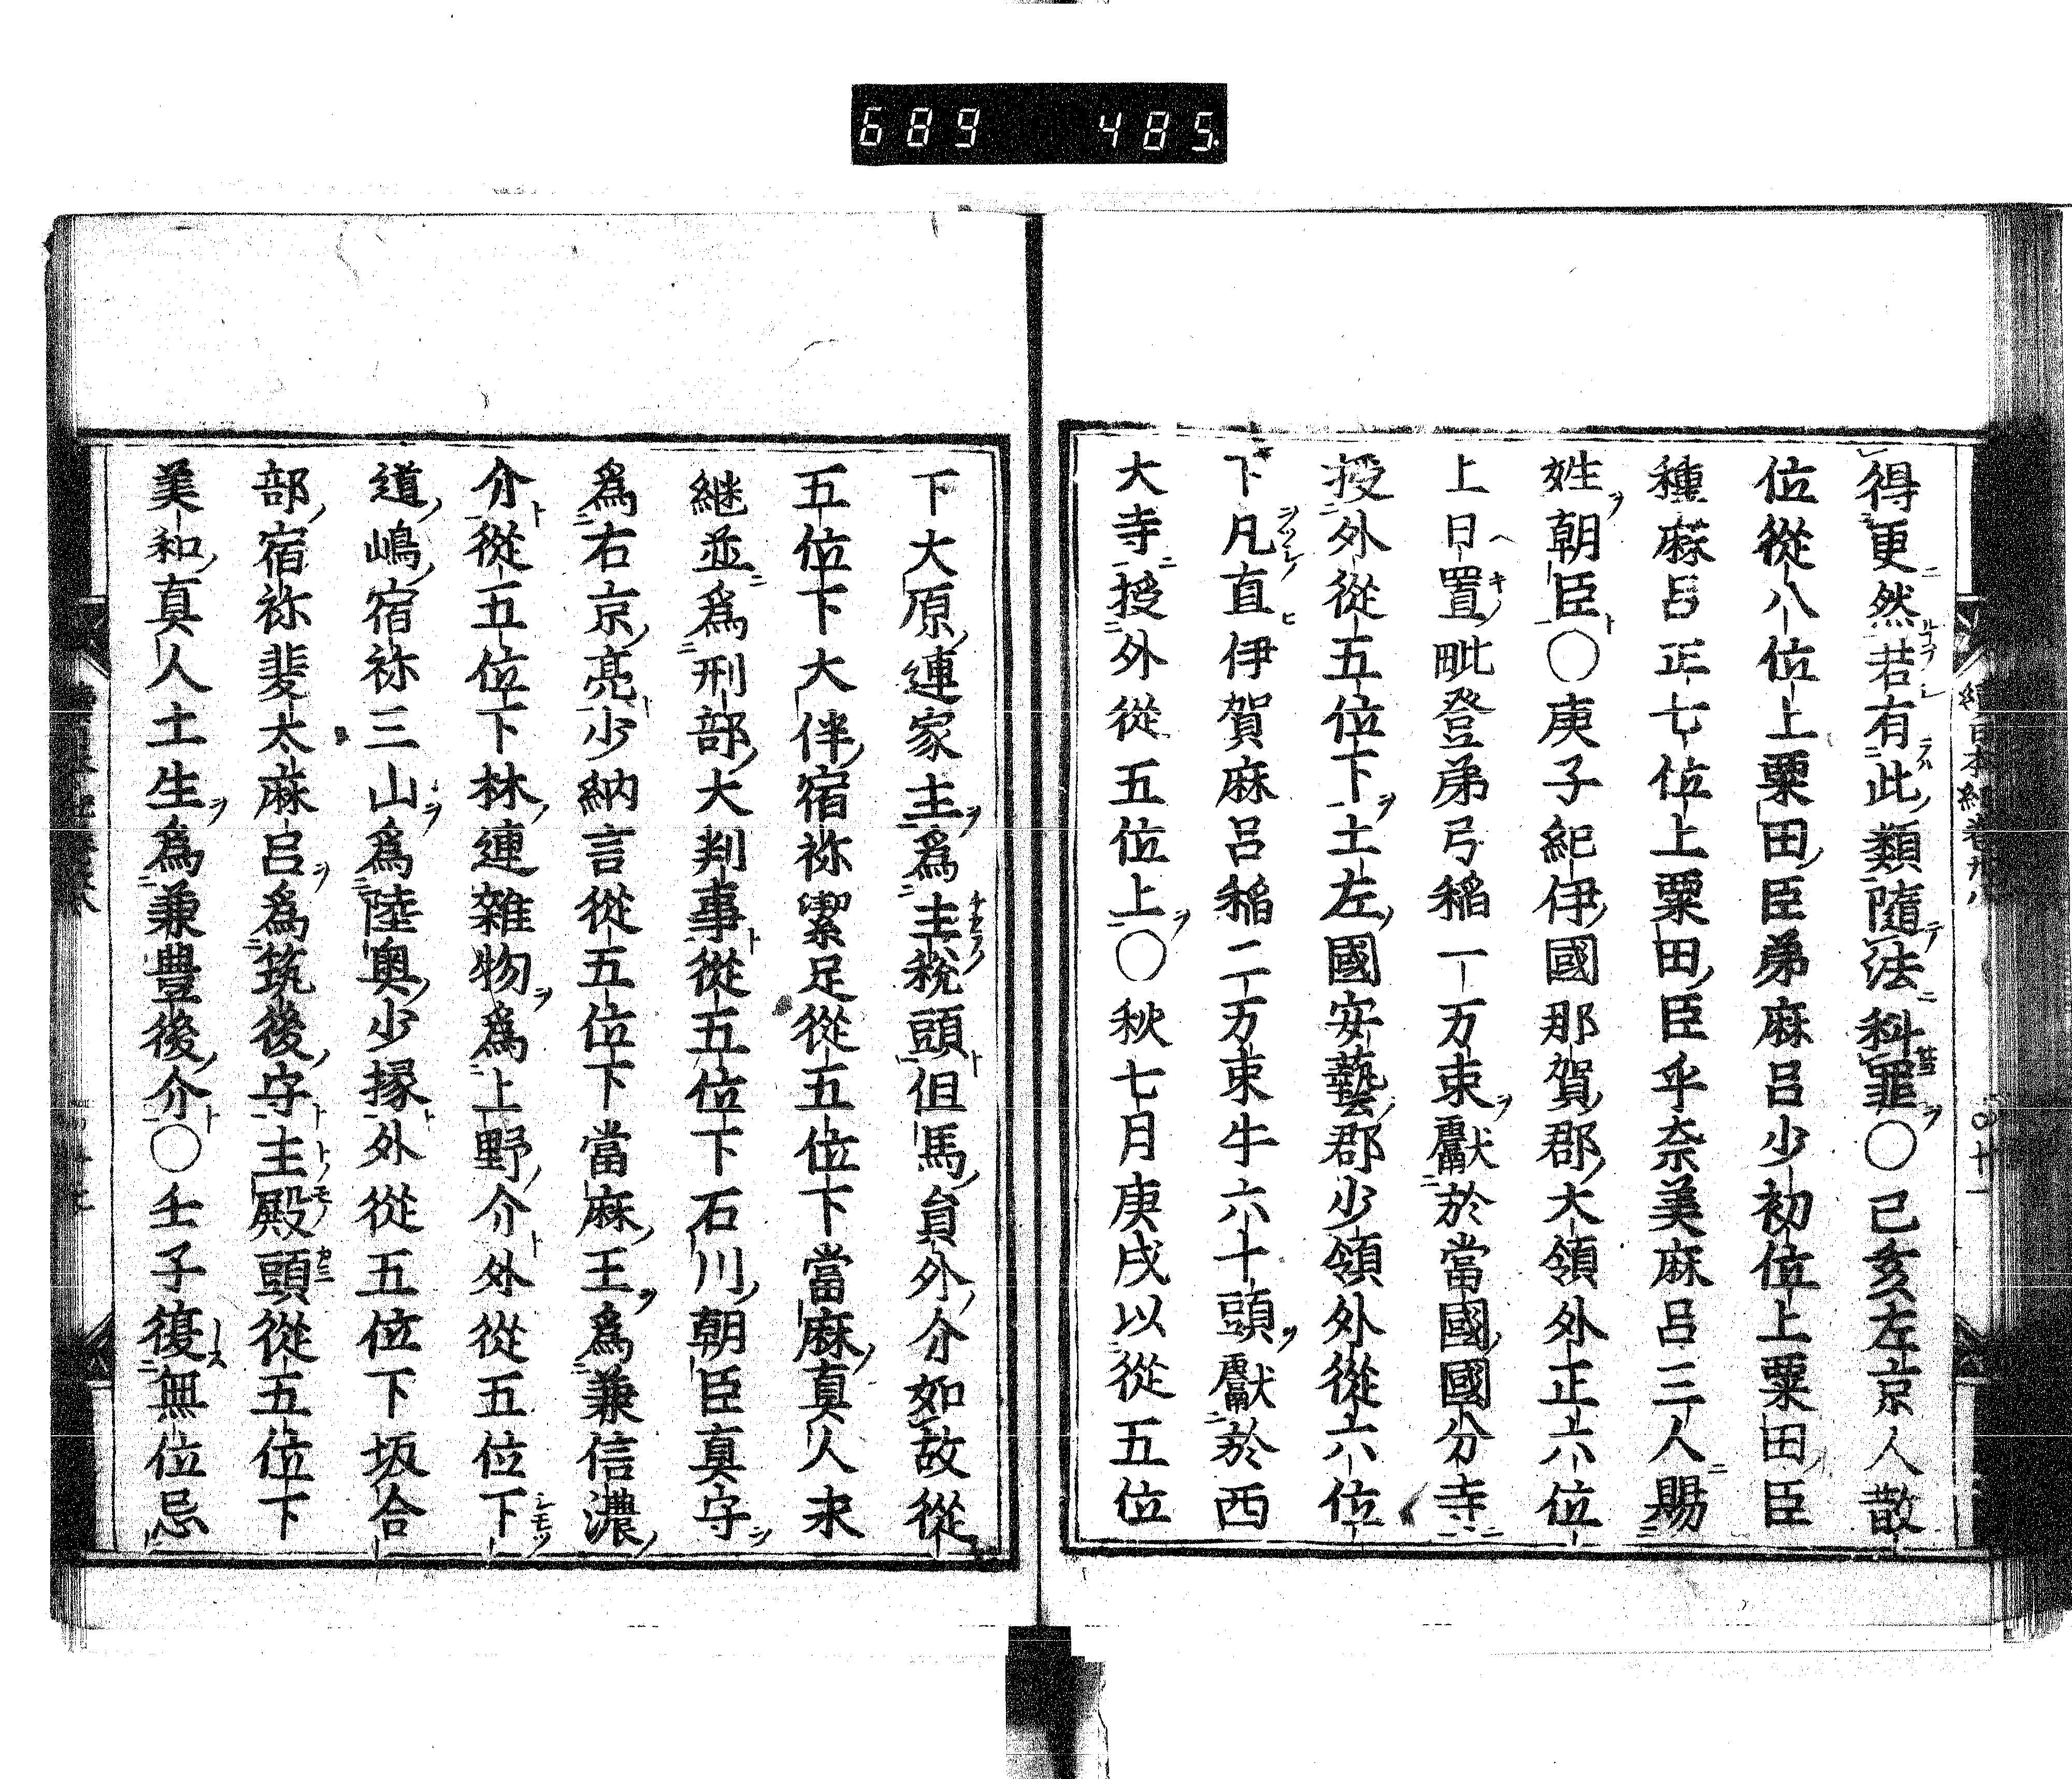 689 485
得更然若有此類隨法科罪〇己亥左京人散
位從八位上粟田臣弟麻呂少初位上粟田臣
種麻呂正七位上粟田臣乎奈美麻呂三人賜
姓朝臣〇庚子紀伊國那賀郡大領外正六位
上日置毗登弟弓稻一万束獻於當國國分寺
授外從五位下土左國安藝郡少領外從六位
下凡直伊賀麻呂稻二万束牛六十頭獻於西
大寺授外從五位上〇秋七月庚戌以從五位
下大原連家主爲主稅頭但馬員外介如故從
五位下大伴宿祢潔足從五位下當麻真人永
継並爲刑部大判事從五位下石川朝臣真守
爲右京亮少納言從五位下當麻王爲兼信濃
介從五位下林連雜物爲上野介外從五位下
道嶋宿祢三山爲陸奧少掾外從五位下坂合
部宿祢斐太麻呂爲筑後守主殿頭從五位下
美和真人土生爲兼豊後介〇壬子復無位忌